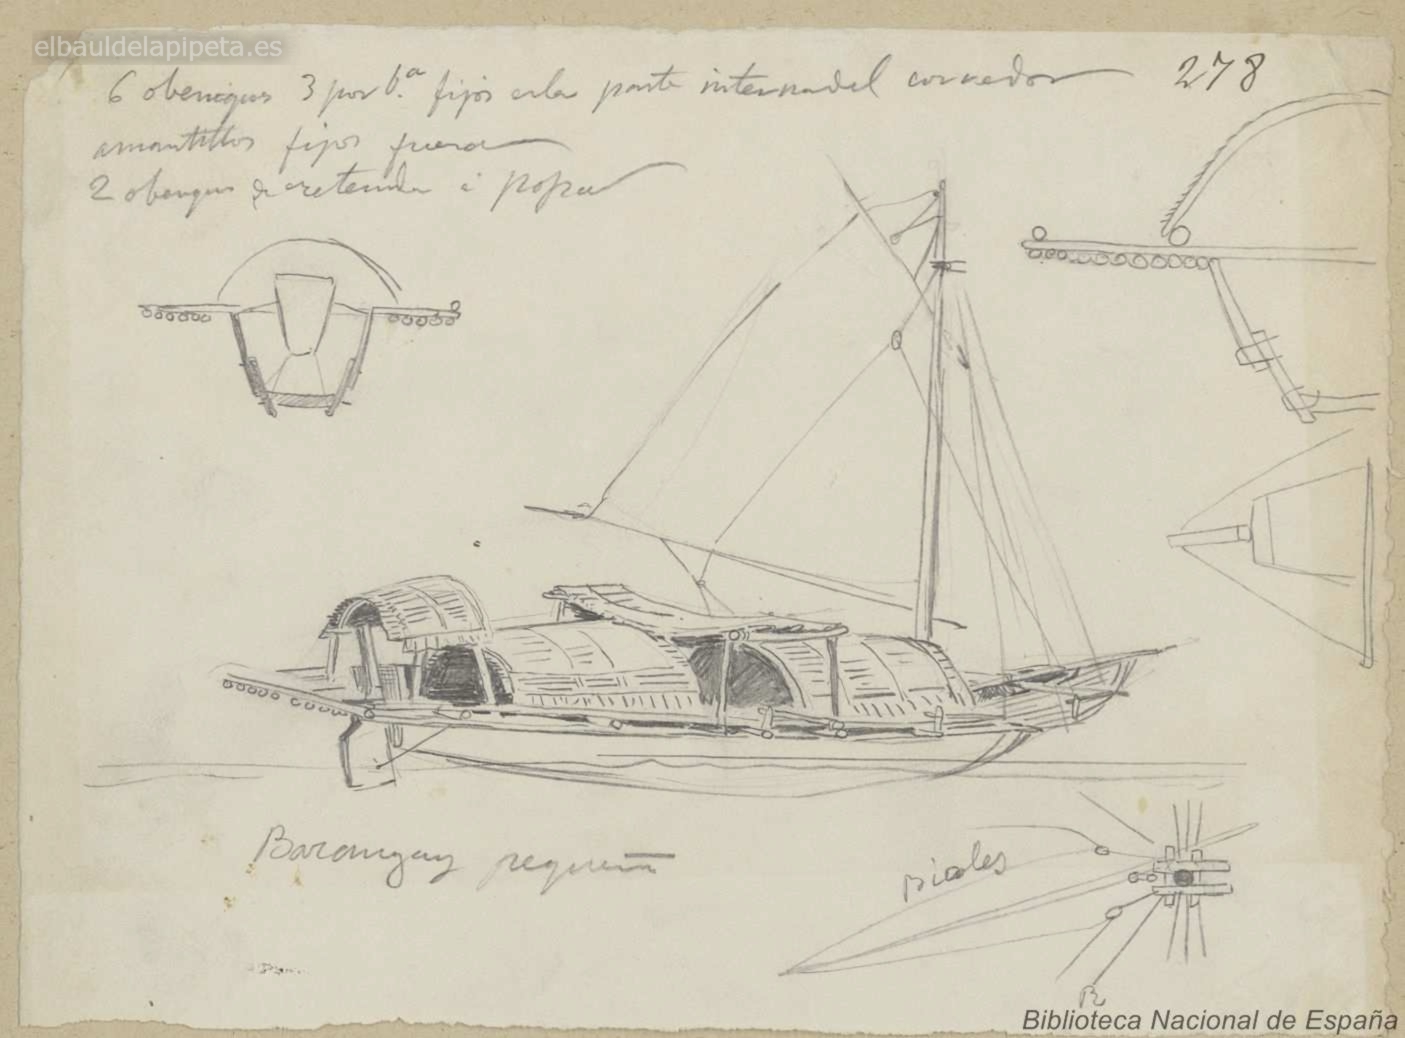 elbauldelapipeta.es
278
6 obenques 3 por b.ª fijos en la parte interna del corredor
amantillos fijos fuera
2 obenques de retenida á popa
Barangay pequeño
picoles
R
Biblioteca Nacional de España